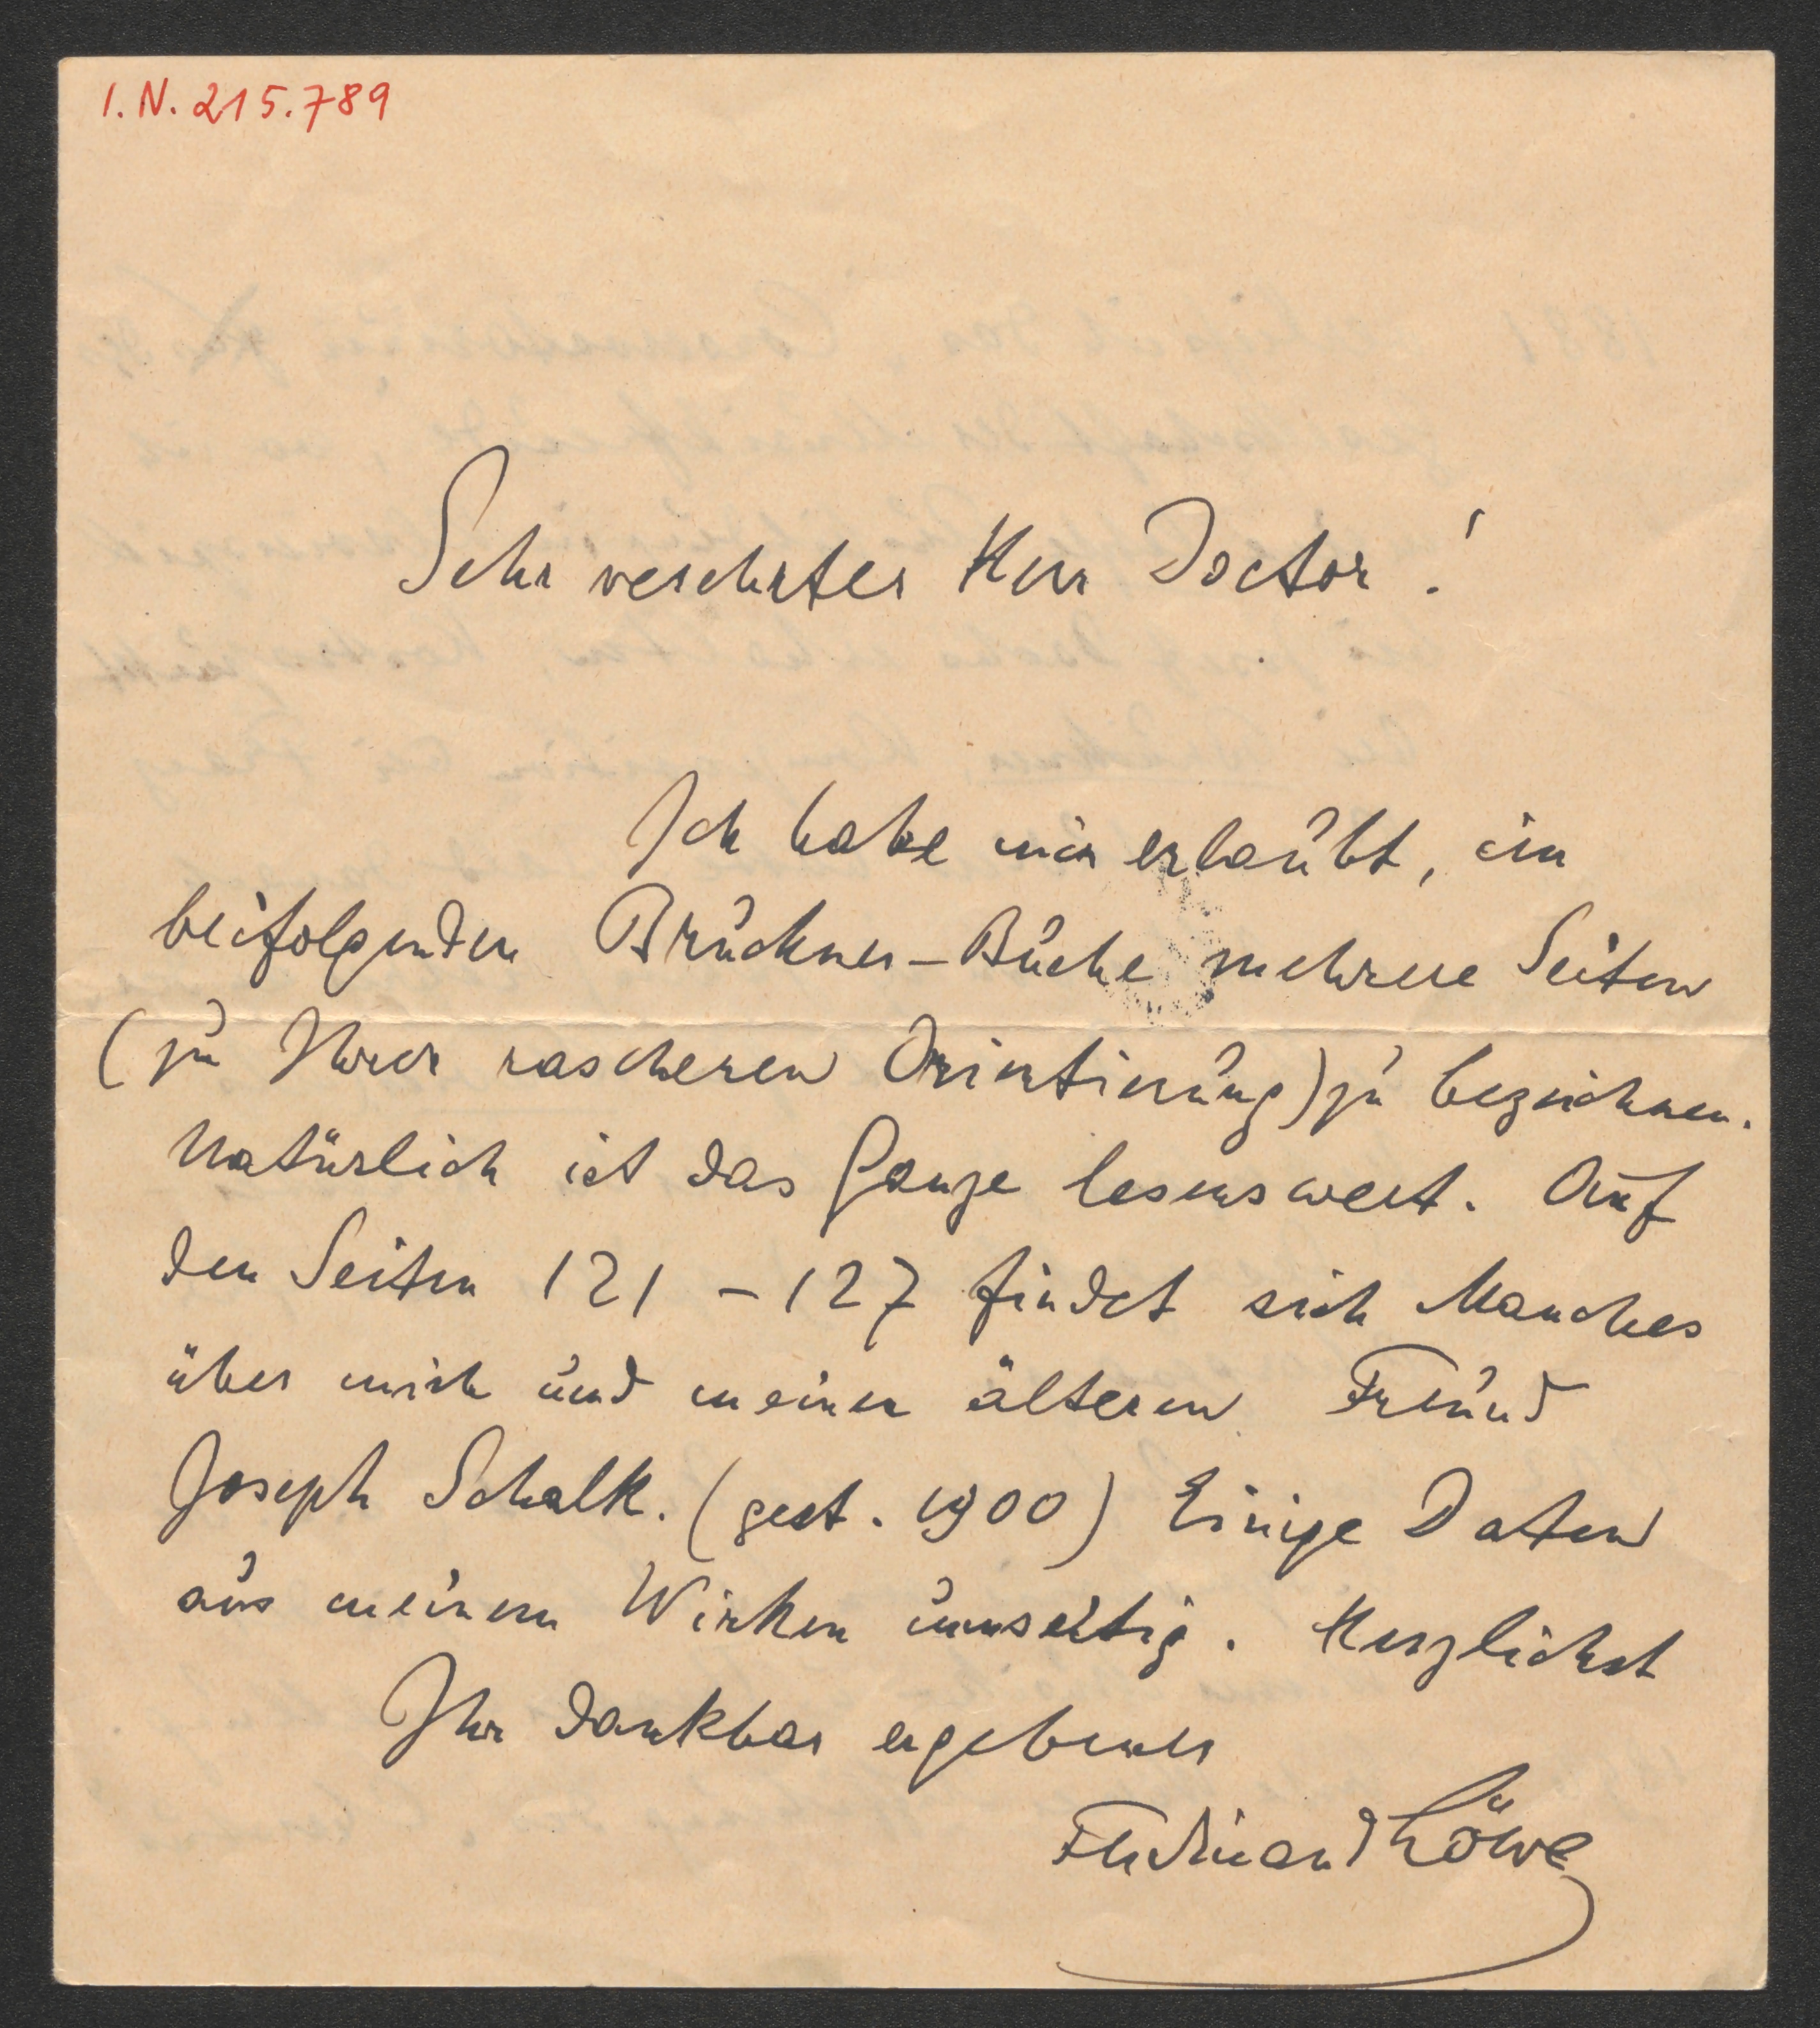 I.N. 215.789
Sehr verehrter Herr Doctor!
Ich habe mir erlaubt, im
beifolgenden Bruckner-Buche mehrere Seiten
(zu Ihrer rascheren Orientierung) zu bezeichnen.
Natürlich ist das Ganze lesenswert. Auf
den Seiten 121 - 127 findet sich Manches
über mich und meinen älteren Freund
Joseph Schalk. (gest. 1900) Einige Daten
aus meinem Wirken umseitig. Herzlichst
Ihr dankbar ergebener
Ferdinand Löwe